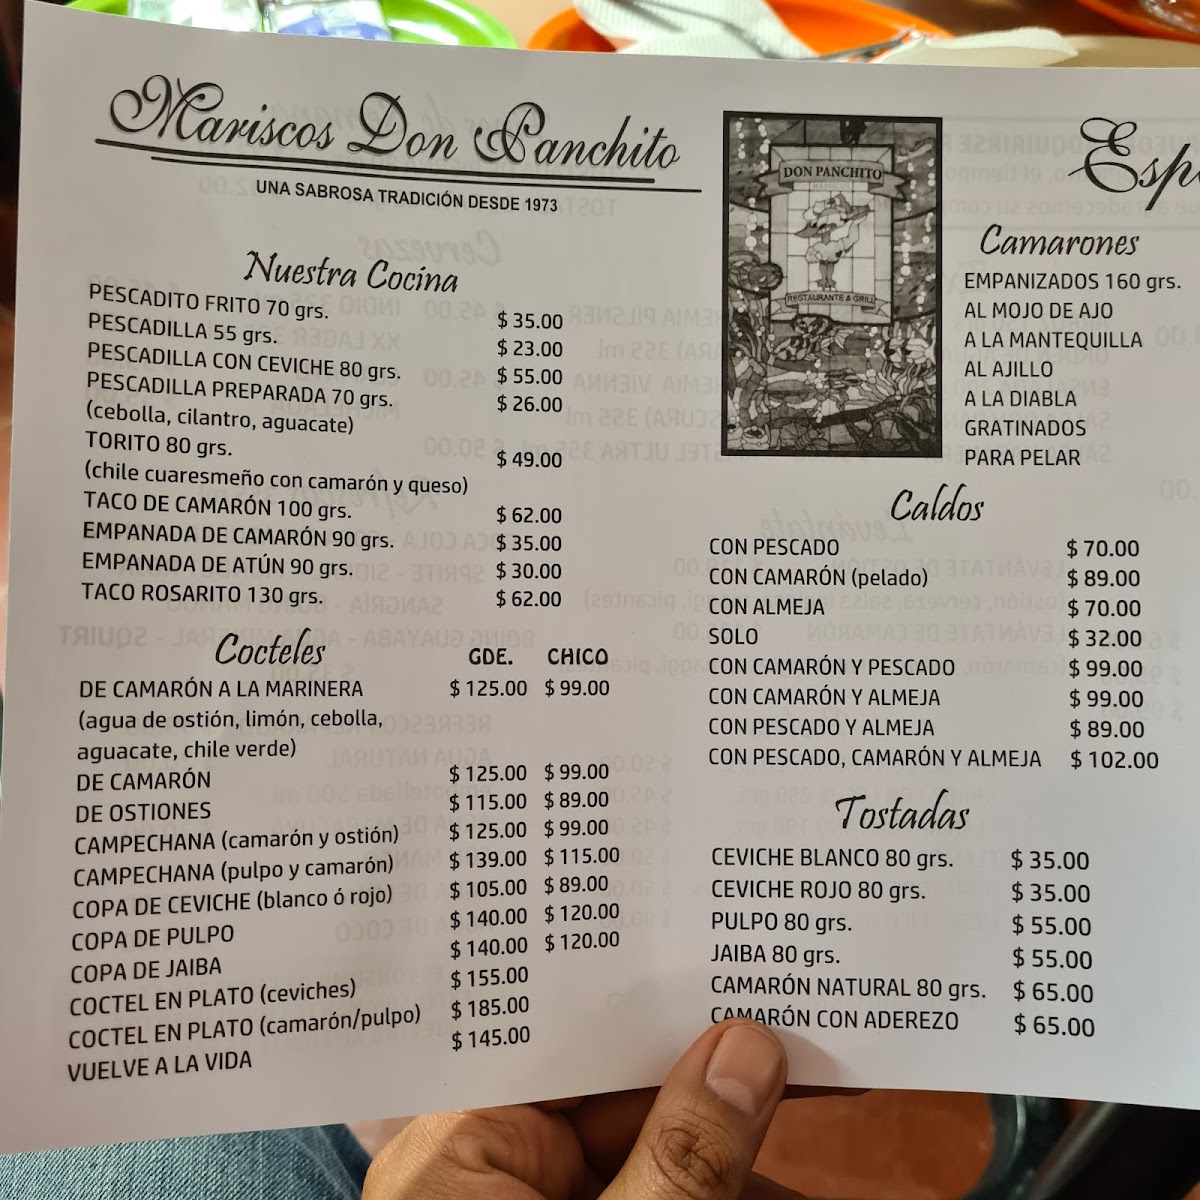 Mariscos Don Panchito
UNA SABROSA TRADICIÓN DESDE 1973
Nuestra Cocina
PESCADITO FRITO 70 grs. $ 35.00
PESCADILLA 55 grs. $ 23.00
PESCADILLA CON CEVICHE 80 grs. $ 55.00
PESCADILLA PREPARADA 70 grs. $ 26.00
(cebolla, cilantro, aguacate)
TORITO 80 grs. $ 49.00
(chile cuaresmeño con camarón y queso)
TACO DE CAMARÓN 100 grs. $ 62.00
EMPANADA DE CAMARÓN 90 grs. $ 35.00
EMPANADA DE ATÚN 90 grs. $ 30.00
TACO ROSARITO 130 grs. $ 62.00
Cocteles GDE. CHICO
DE CAMARÓN A LA MARINERA $ 125.00 $ 99.00
(agua de ostión, limón, cebolla,
aguacate, chile verde)
DE CAMARÓN $ 125.00 $ 99.00
DE OSTIONES $ 115.00 $ 89.00
CAMPECHANA (camarón y ostión) $ 125.00 $ 99.00
CAMPECHANA (pulpo y camarón) $ 139.00 $ 115.00
COPA DE CEVICHE (blanco ó rojo) $ 105.00 $ 89.00
COPA DE PULPO $ 140.00 $ 120.00
COPA DE JAIBA $ 140.00 $ 120.00
COCTEL EN PLATO (ceviches) $ 155.00
COCTEL EN PLATO (camarón/pulpo) $ 185.00
VUELVE A LA VIDA $ 145.00
DON PANCHITO
MARISCOS
RESTAURANTE & GRILL
Camarones
EMPANIZADOS 160 grs.
AL MOJO DE AJO
A LA MANTEQUILLA
AL AJILLO
A LA DIABLA
GRATINADOS
PARA PELAR
Caldos
CON PESCADO $ 70.00
CON CAMARÓN (pelado) $ 89.00
CON ALMEJA $ 70.00
SOLO $ 32.00
CON CAMARÓN Y PESCADO $ 99.00
CON CAMARÓN Y ALMEJA $ 99.00
CON PESCADO Y ALMEJA $ 89.00
CON PESCADO, CAMARÓN Y ALMEJA $ 102.00
Tostadas
CEVICHE BLANCO 80 grs. $ 35.00
CEVICHE ROJO 80 grs. $ 35.00
PULPO 80 grs. $ 55.00
JAIBA 80 grs. $ 55.00
CAMARÓN NATURAL 80 grs. $ 65.00
CAMARÓN CON ADEREZO $ 65.00